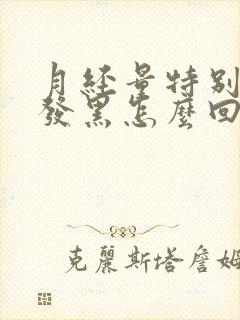 月經量特別
發黑怎麼回
克麗斯塔詹姆